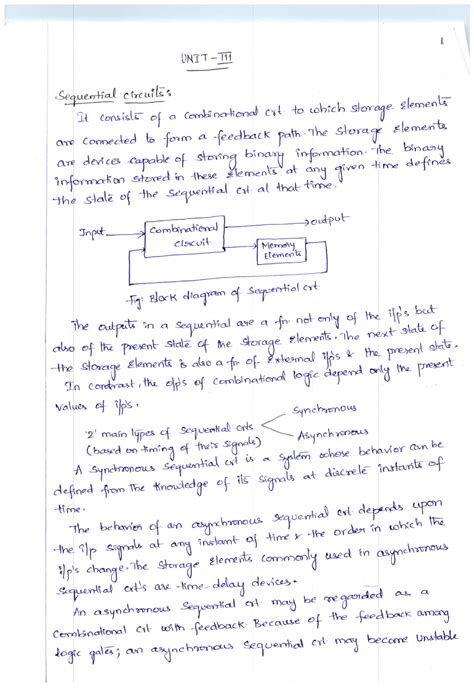 1
UNIT-III
Sequential circuits:
It consists of a combinational ckt to which storage elements
are connected to form a feedback path. The storage elements
are devices capable of storing binary information. The binary
information stored in these elements at any given time defines
the state of the sequential ckt at that time.
Input
Combinational
Circuit
output
Memory
Elements
Fig: Block diagram of Sequential ckt
The outputs in a sequential are a fn not only of the i/p's but
also of the present state of the storage elements. The next state of
the storage elements is also a fn of external i/p's & the present state.
In contrast, the o/p's of combinational logic depend only the present
values of i/p's.
'2' main types of Sequential ckts
(based on timing of their signals)
Synchronous
Asynchronous
A Synchronous sequential ckt is a system whose behavior can be
defined from the knowledge of its signals at discrete instants of
time.
The behavior of an asynchronous sequential ckt depends upon
the i/p signals at any instant of time & the order in which the
i/p's change. The storage elements commonly used in asynchronous
sequential ckt's are time-delay devices.
An asynchronous Sequential ckt may be regarded as a
combinational ckt with feedback. Because of the feedback among
logic gates; an asynchronous sequential ckt may become unstable